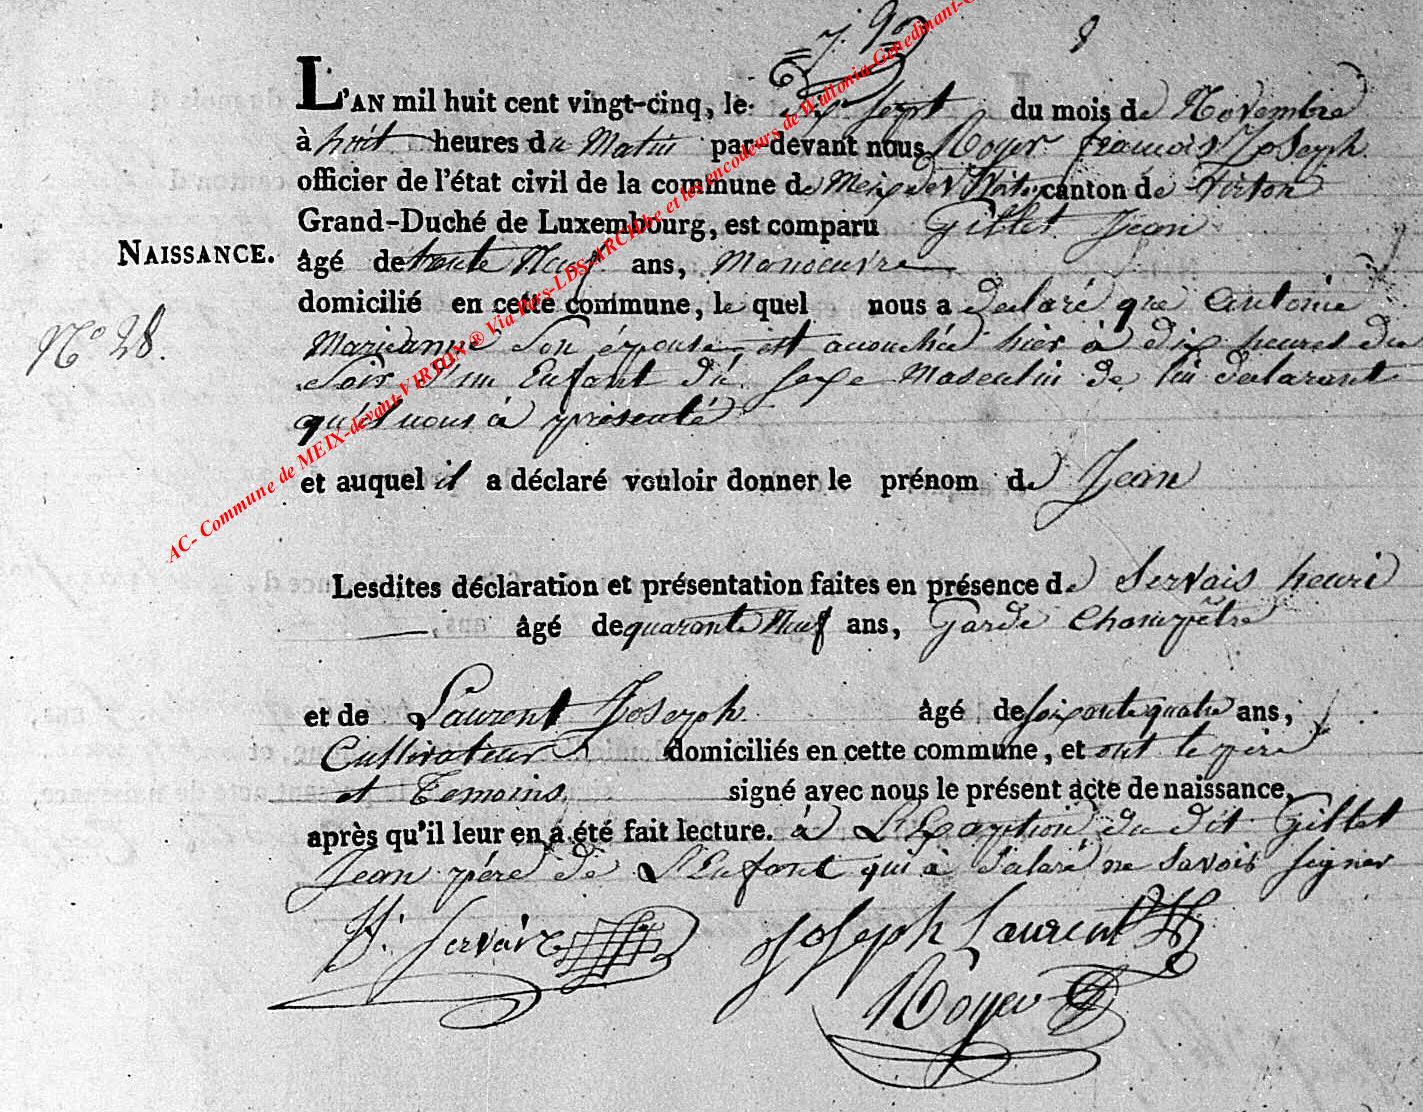 8
L'AN mil huit cent vingt-cinq, le dix Sept du mois de Novembre
à huit heures du Matin par-devant nous Royer francois Joseph
officier de l'état civil de la commune de Meix devt Virton canton de Virton
Grand-Duché de Luxembourg, est comparu Gillet Jean
NAISSANCE.
âgé de trente Neuf ans, Manoeuvre
domicilié en cette commune, le quel nous a declaré que Antoine
N° 28.
Marianne Son épouse est accouchée hier à dix heures du
Soir d'un Enfant du Sexe Masculin de lui declarant
qu'il nous à présenté
et auquel il a déclaré vouloir donner le prénom de Jean
Lesdites déclaration et présentation faites en présence de Servais henri
âgé de quarante Neuf ans, Garde Champêtre
et de Laurent Joseph âgé de soixante quatre ans,
Cultivateur domiciliés en cette commune, et ont le père
et Temoins signé avec nous le présent acte de naissance,
après qu'il leur en a été fait lecture. à L'Exception du dit Gillet
Jean père de L'Enfant qui à déclaré ne savoir signer
H. Servais Joseph Laurent
Royer
AC- Commune de MEIX-devant-VIRTON ® Via Pars-LDS-ARCHbe et les encodeurs de Wallonia Genedinant-